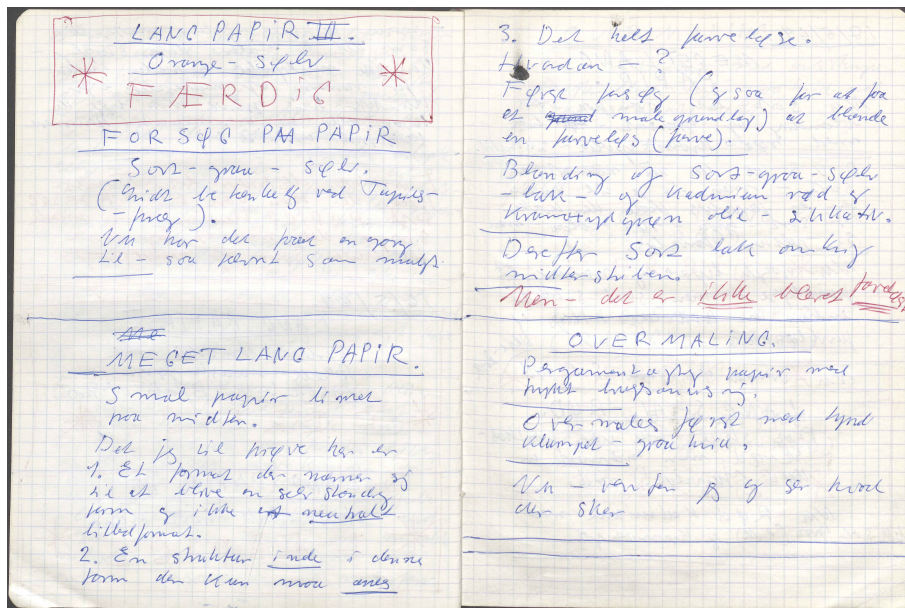 LANG PAPIR III.
Orange - sølv
FÆRDIG
FORSØG PAA PAPIR
Sort - graa - sølv.
(Lidt betænkelig ved Tapies-
- præg).
Nu har det faaet en gang
til - saa jævnt som muligt.
MEGET LANG PAPIR.
Smal papir limet
paa midten.
Det jeg vil prøve her er
1. Et format der nærmer sig
til at blive en selvstændig
form og ikke et neutralt
billedformat.
2. En struktur inde i denne
form der kun maa anes
3. Det helt farveløse.
Hvordan - ?
Først forsøg (ogsaa for at faa
et male grundlag) at blande
en farveløs (farve).
Blanding af Sort-graa-sølv
- lak - og Kadmium rød og
Kromoxydgrøn olie - sikkativ.
Derefter Sort lak omkring
midterstriben.
Men - det er ikke blevet farveløst
OVERMALING.
Pergamentagtig papir med
tykt
Overmales først med tynd
klumpet - graa hvid.
Nu - venter jeg og ser hvad
der sker